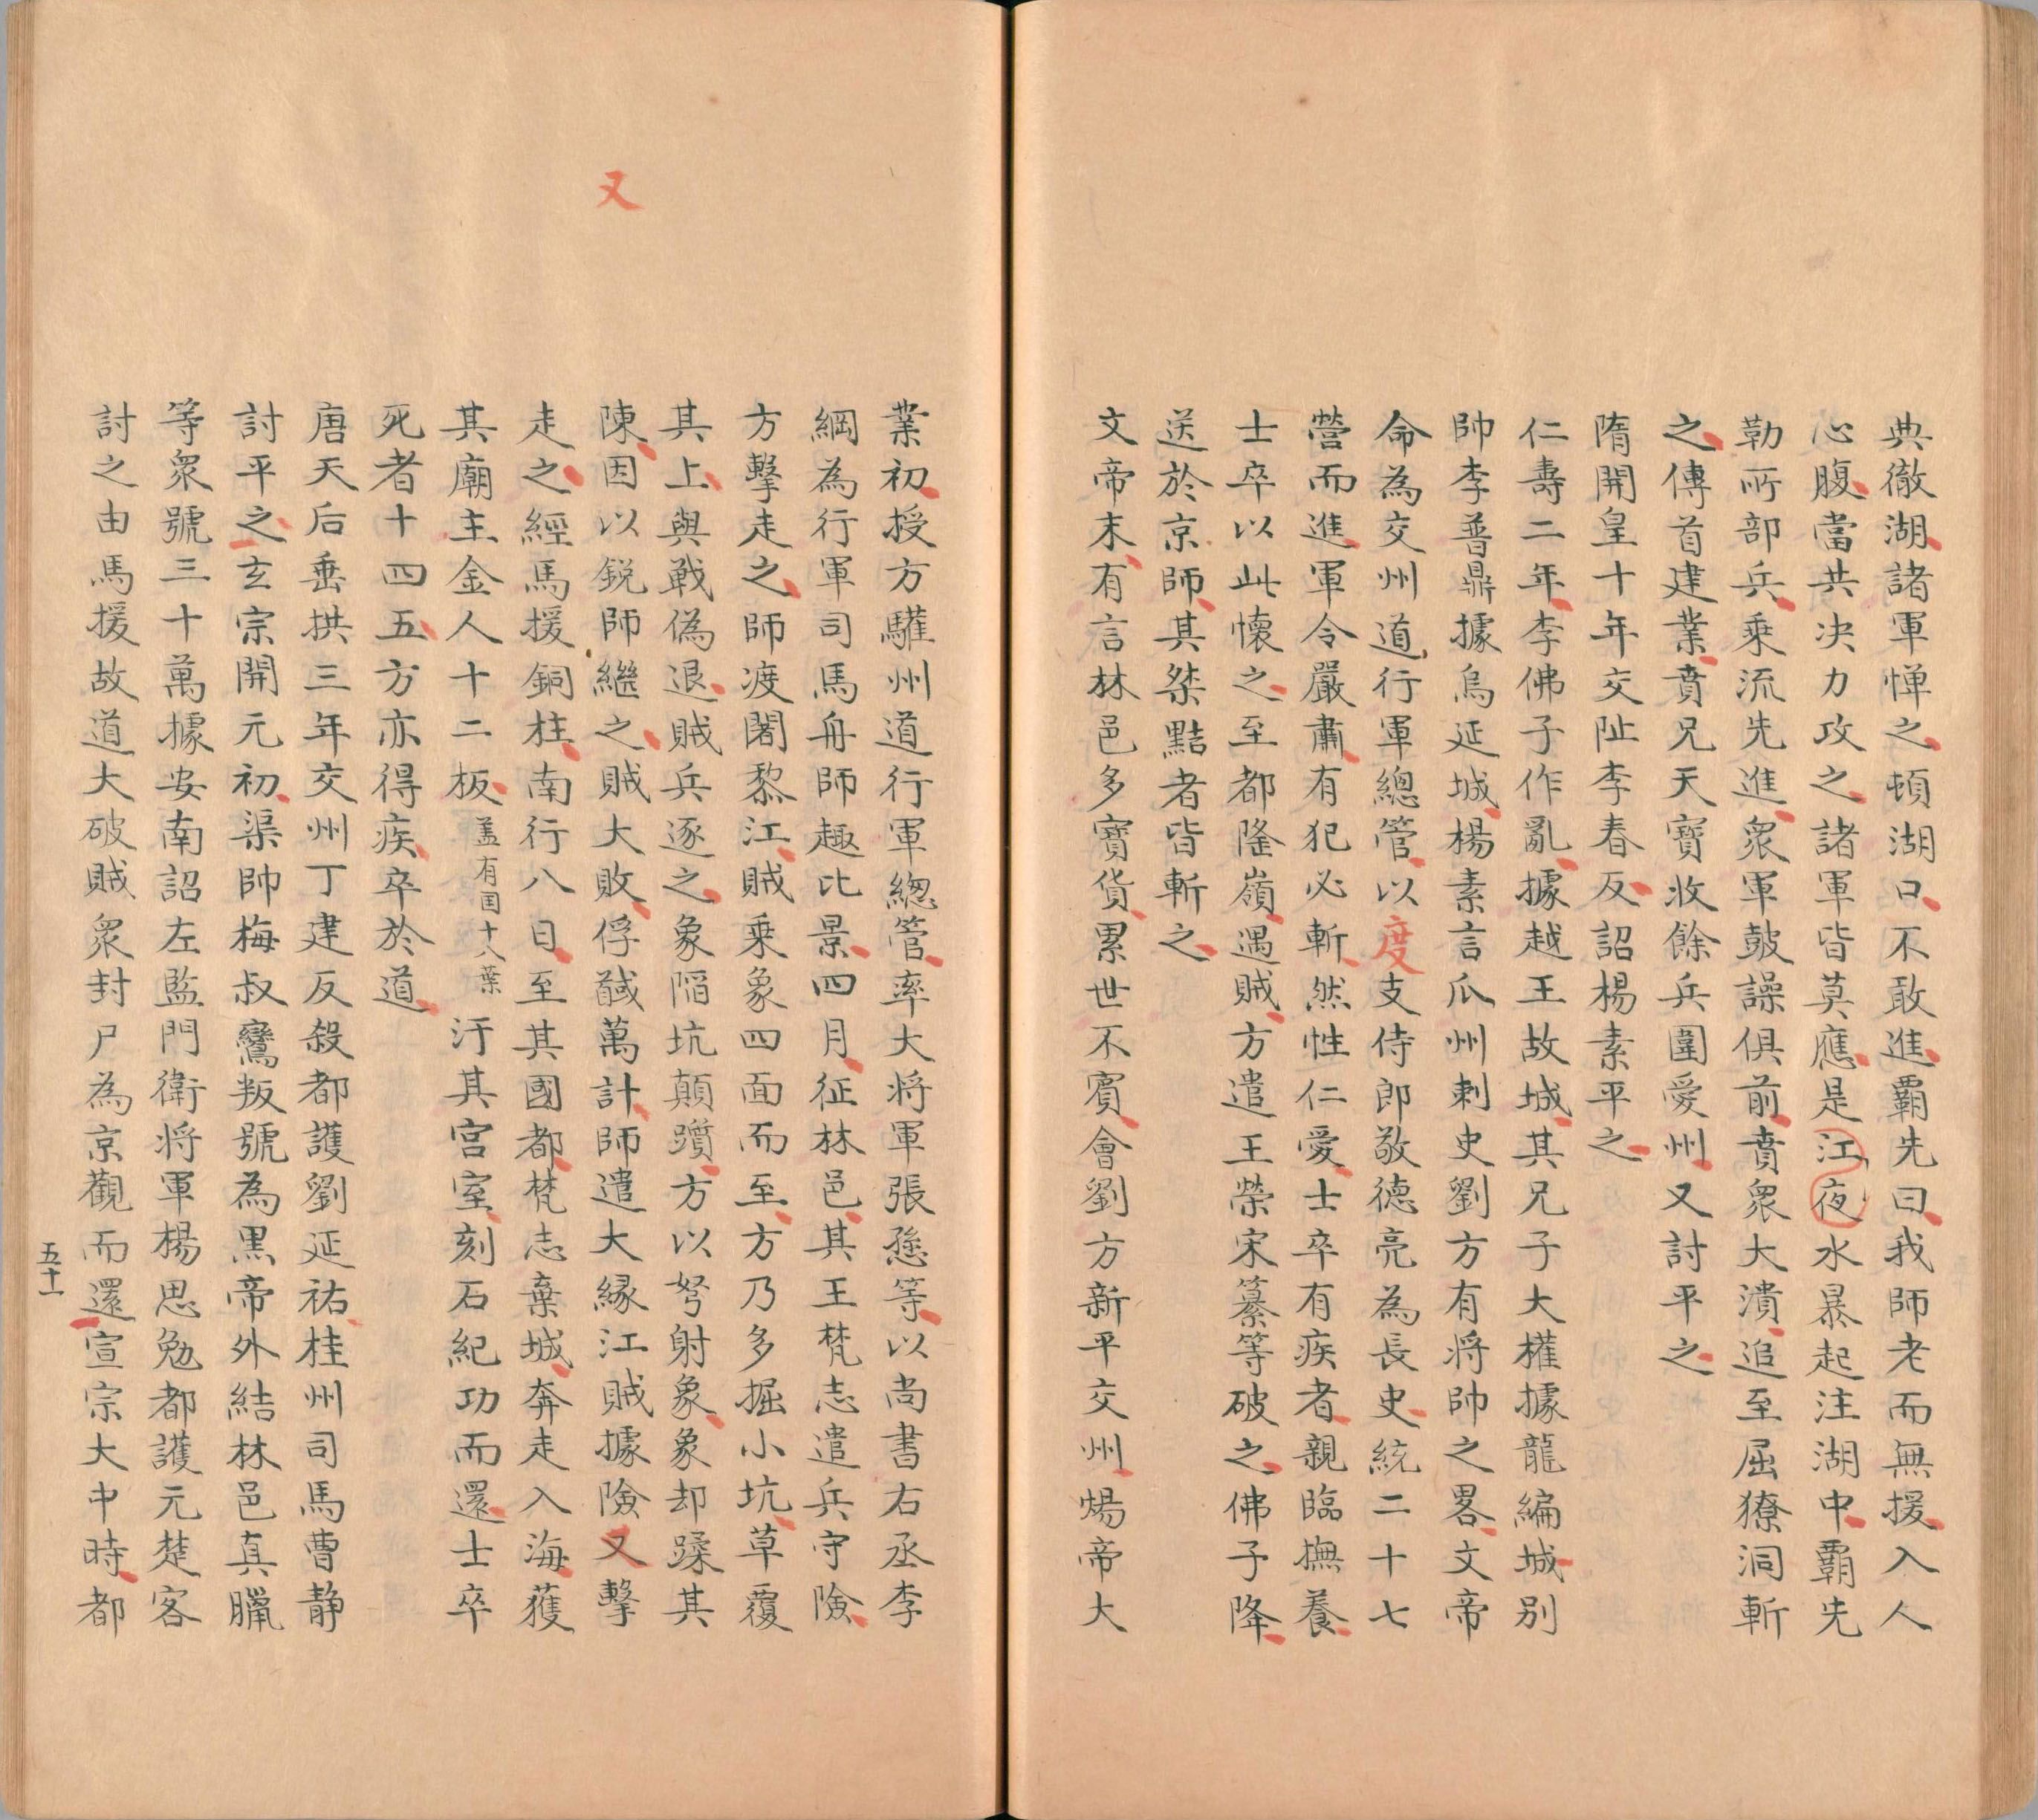 典徹湖諸軍憚之頓湖口不敢進霸先曰我師老而無援入人
心腹當共决力攻之諸軍皆莫應是江夜水暴起注湖中霸先
勒所部兵乘流先進衆軍鼓譟俱前賁衆大潰追至屈獠洞斬
之傳首建業賁兄天寶收餘兵圍愛州又討平之
隋開皇十年交阯李春反詔楊素平之
仁壽二年李佛子作亂據越王故城其兄子大權據龍編城别
帥李普鼎據烏延城楊素言瓜州刺史劉方有將帥之畧文帝
命為交州道行軍總管以度支侍郎敬德亮為長史統二十七
營而進軍令嚴肅有犯必斬然性仁愛士卒有疾者親臨撫養
士卒以此懷之至都隆嶺遇賊方遣王榮宋纂等破之佛子降
送於京師其桀黠者皆斬之
文帝末有言林邑多寶貨累世不賓會劉方新平交州煬帝大
業初授方驩州道行軍總管率大将軍張愻等以尚書右丞李
綱為行軍司馬舟師趣比景四月征林邑其王梵志遣兵守險
方擊走之師渡闍黎江賊乘象四面而至方乃多掘小坑草覆
其上與戰偽退賊兵逐之象陷坑顛躓方以弩射象象却蹂其
陳因以銳師繼之賊大敗俘馘萬計師遣大緣江賊據險又擊
走之經馬援銅柱南行八日至其國都梵志棄城奔走入海獲
其廟主金人十二板盖有囯十八葉汙其宮室刻石紀功而還士卒
死者十四五方亦得疾卒於道
唐天后垂拱三年交州丁建反殺都護劉延祐桂州司馬曹静
討平之玄宗開元初渠帥梅叔鸞叛號為黒帝外結林邑真臘
等衆號三十萬據安南詔左監門衛將軍楊思勉都護元楚客
討之由馬援故道大破賊衆封尸為京觀而還宣宗大中時都
五十一
又